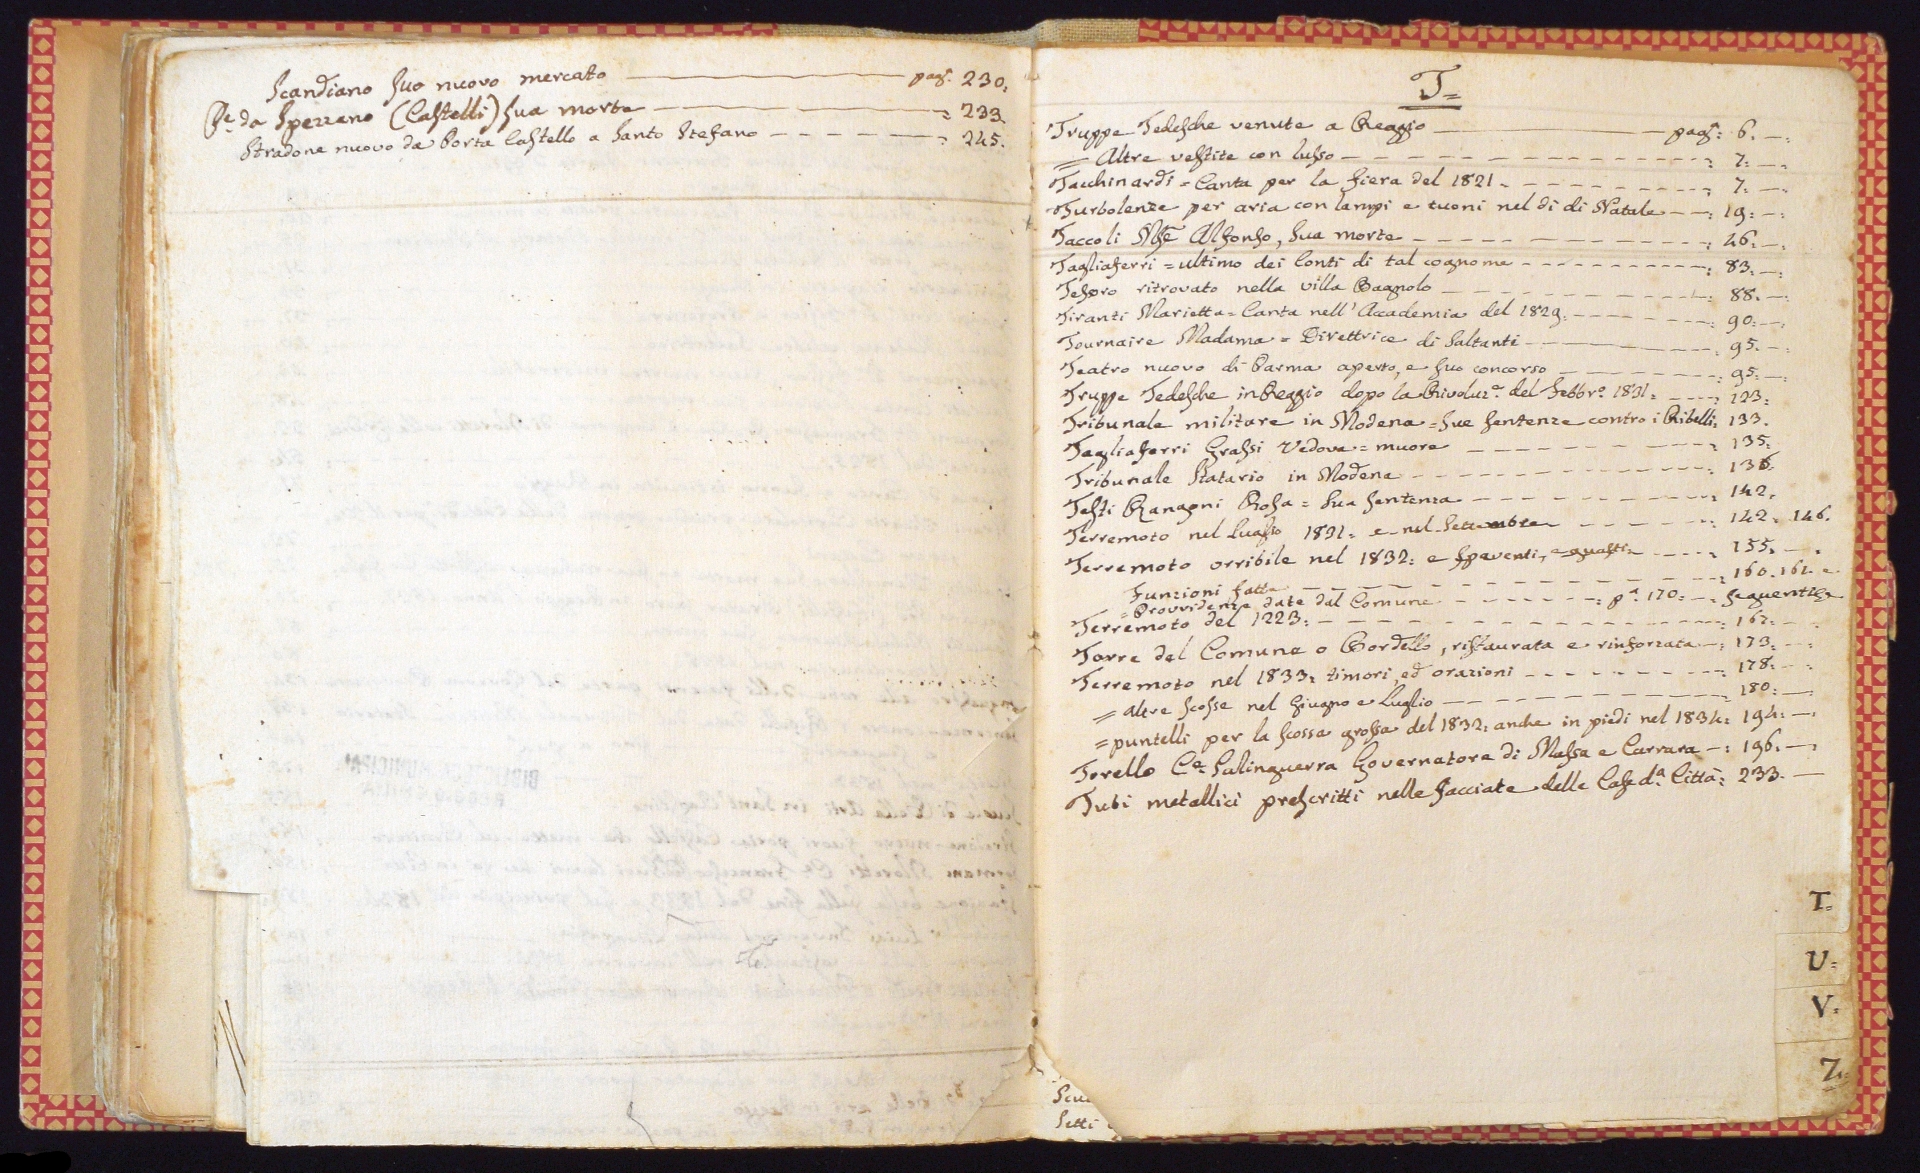 Scandiano suo nuovo mercato — pag. 230:
Pe. da Spezzano (Castelli) sua morte — : 233.
Stradone nuovo da Porta Castello a Santo Stefano - - - - : 245.
T=
Truppe Tedesche venute a Reggio — pag.: 6. —.
= Altre vestite con lusso — - - - - : 7: —.
Tacchinardi = Canta per la fiera del 1821. - - - - : 7. —.
Turbolenze per aria con lampi e tuoni nel dì di Natale — —: 19: —.
Taccoli Alfonso, sua morte - - - - : 46. —.
Tagliaferri = ultimo dei Conti di tal cognome - - - - : 83. —.
Tesoro ritrovato nella villa Bagnolo - - - - : 88. —.
Tiranti Marietta = Canta nell' Accademia del 1829. - - - - : 90. —.
Tournaire Madama = Direttrice di Saltanti - - - - : 95. —.
Teatro nuovo di Parma aperto, e suo concorso - - - - : 95. —.
Truppe Tedesche in Reggio dopo la Rivoluz.e del Febbr.o 1831. - - - - : 123:
Tribunale militare in Modena = sue sentenze contro i Ribelli: 133.
Tagliaferri Grassi Vedova = muore - - - - : 135.
Tribunale Statario in Modena - - - - : 136.
Testi Rangoni Rosa = sua sentenza - - - - : 142.
Terremoto nel Luglio 1831: e nel Settembre - - - - : 142: 146.
Terremoto orribile nel 1832: e spaventi, e guasti - - - - : 155. —.
Funzioni fatte - - - - : 160. 161. e
= Provvidenze date dal Comune - - - - : p.a 170: —. seguenti
Terremoto del 1223: - - - - : 167. —.
Torre del Comune o Bordello, ristaurata e rinforzata —: 173: —.
Terremoto nel 1833: timori, ed orazioni - - - - : 178: —.
= Altre scosse nel Giugno e Luglio - - - - : 180: —.
= puntelli per la scossa grossa del 1832: anche in piedi nel 1834: 194: —.
Torello C.e Salinguerra Governatore di Massa e Carrara —: 196. —.
Tubi metallici prescritti nelle facciate delle Case d.a Città: 233. —
T=
U=
V=
Z=
Scu
Setti